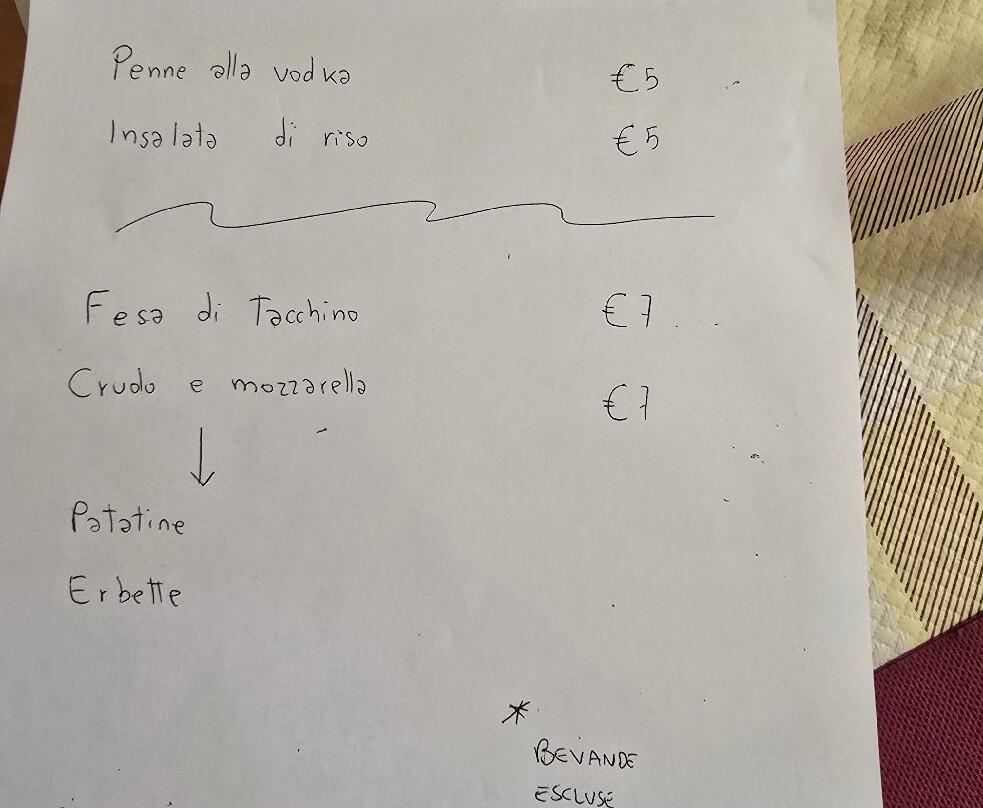 Penne alla vodka €5
Insalata di riso €5
Fesa di Tacchino €7
Crudo e mozzarella €7
↓
Patatine
Erbette
*
BEVANDE
ESCLUSE